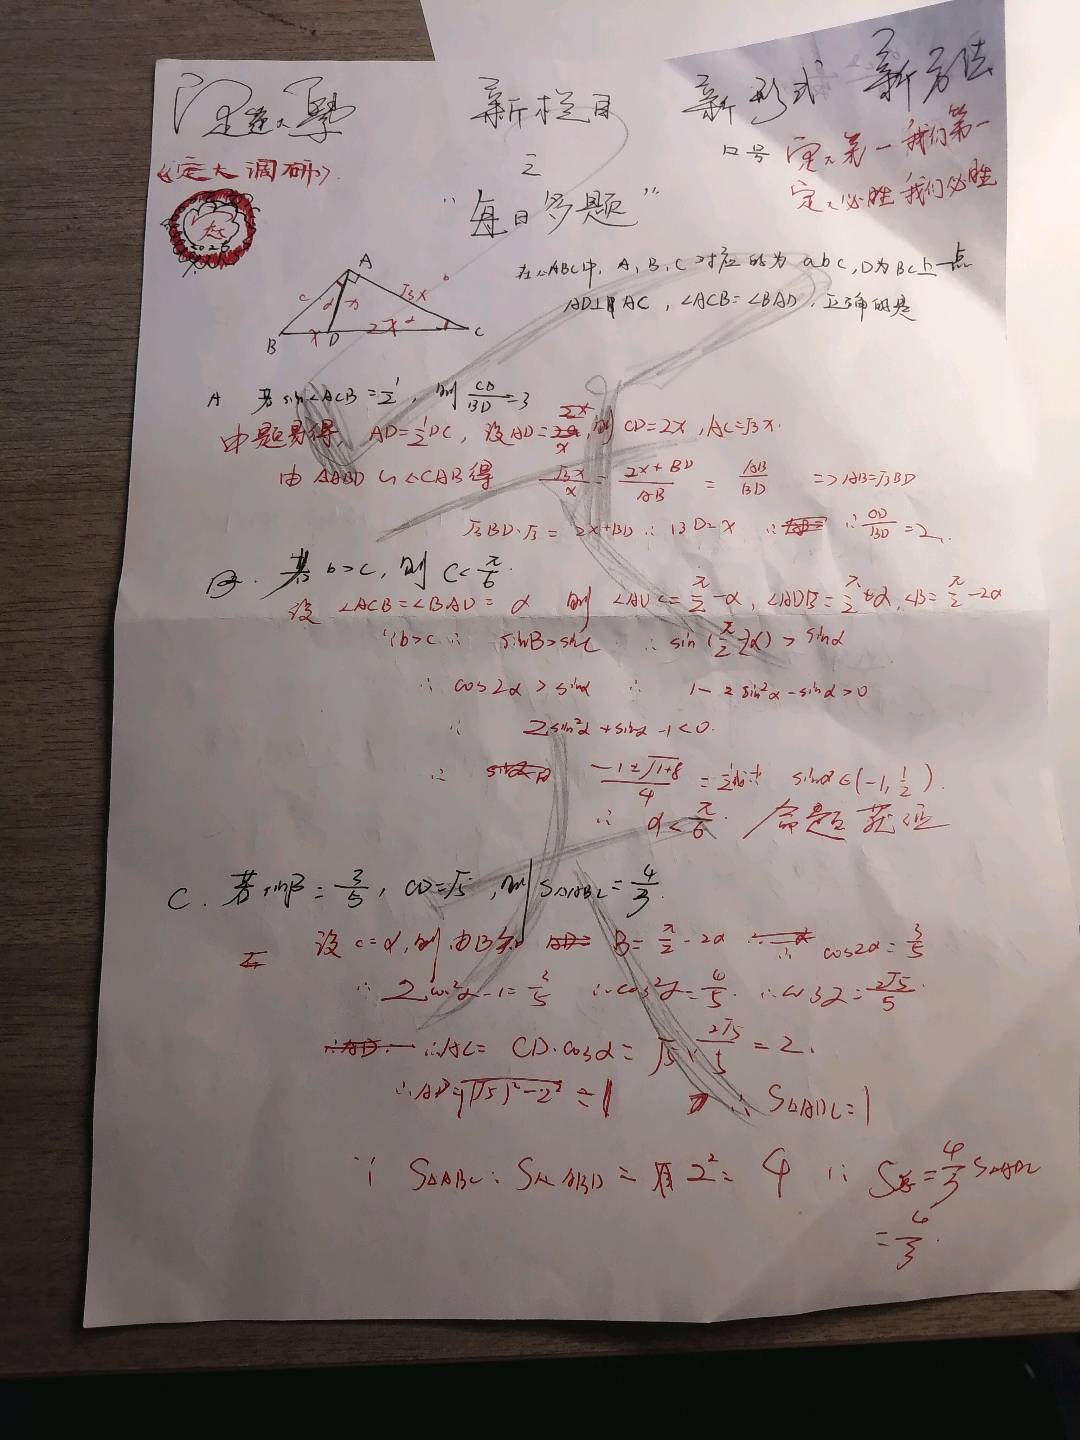 新栏目 新形式 新方法
《定大调研》
之
口号 定大第一我们第一
定大必胜 我们必胜
"每日多题"
2025
在△ABC中, A, B, C对应的为 abc, D为BC上一点
AD⊥AC, ∠ACB=∠BAD, 正确的是
A
c α x √3x b
B x D 2x α C
A 若sin∠ACB=1/2, 则 CD/BD=3
由题易得, AD=1/2DC, 设AD=x, 则 CD=2x, AC=√3x.
由△ABD∽△CAB得 √3x/x = (2x+BD)/AB = AB/BD => AB=√3BD
√3BD·√3 = 2x+BD ∴ BD=x ∴ CD/BD=2.
B. 若b>c, 则 C<π/6.
设 ∠ACB=∠BAD=α 则 ∠ADC=π/2-α, ∠ADB=π/2+α, ∠B=π/2-2α
∵b>c ∴ sinB>sinC ∴ sin(π/2-2α)>sinα
∴ cos2α>sinα ∴ 1-2sin²α-sinα>0
∴ 2sin²α+sinα-1<0.
∴ (-1±√(1+8))/4 = 1/2或-1 sinα∈(-1,1/2).
∴ α<π/6. 命题获证
C. 若sinB=3/5, CD=√5, 则S△ABC=4/3.
设C=α, 则由B知 B=π/2-2α ∴ cos2α=3/5
∴ 2cos²α-1=3/5 ∴cos²α=4/5. ∴cosα=2√5/5
∴AC= CD·cosα=√5·2√5/5=2.
∴AD=√((√5)²-2²)=1 ∴ S△ADC=1
∵ S△ABC:S△ABD=2²=4 ∴ S总=4/3S△ADC
=4/3.